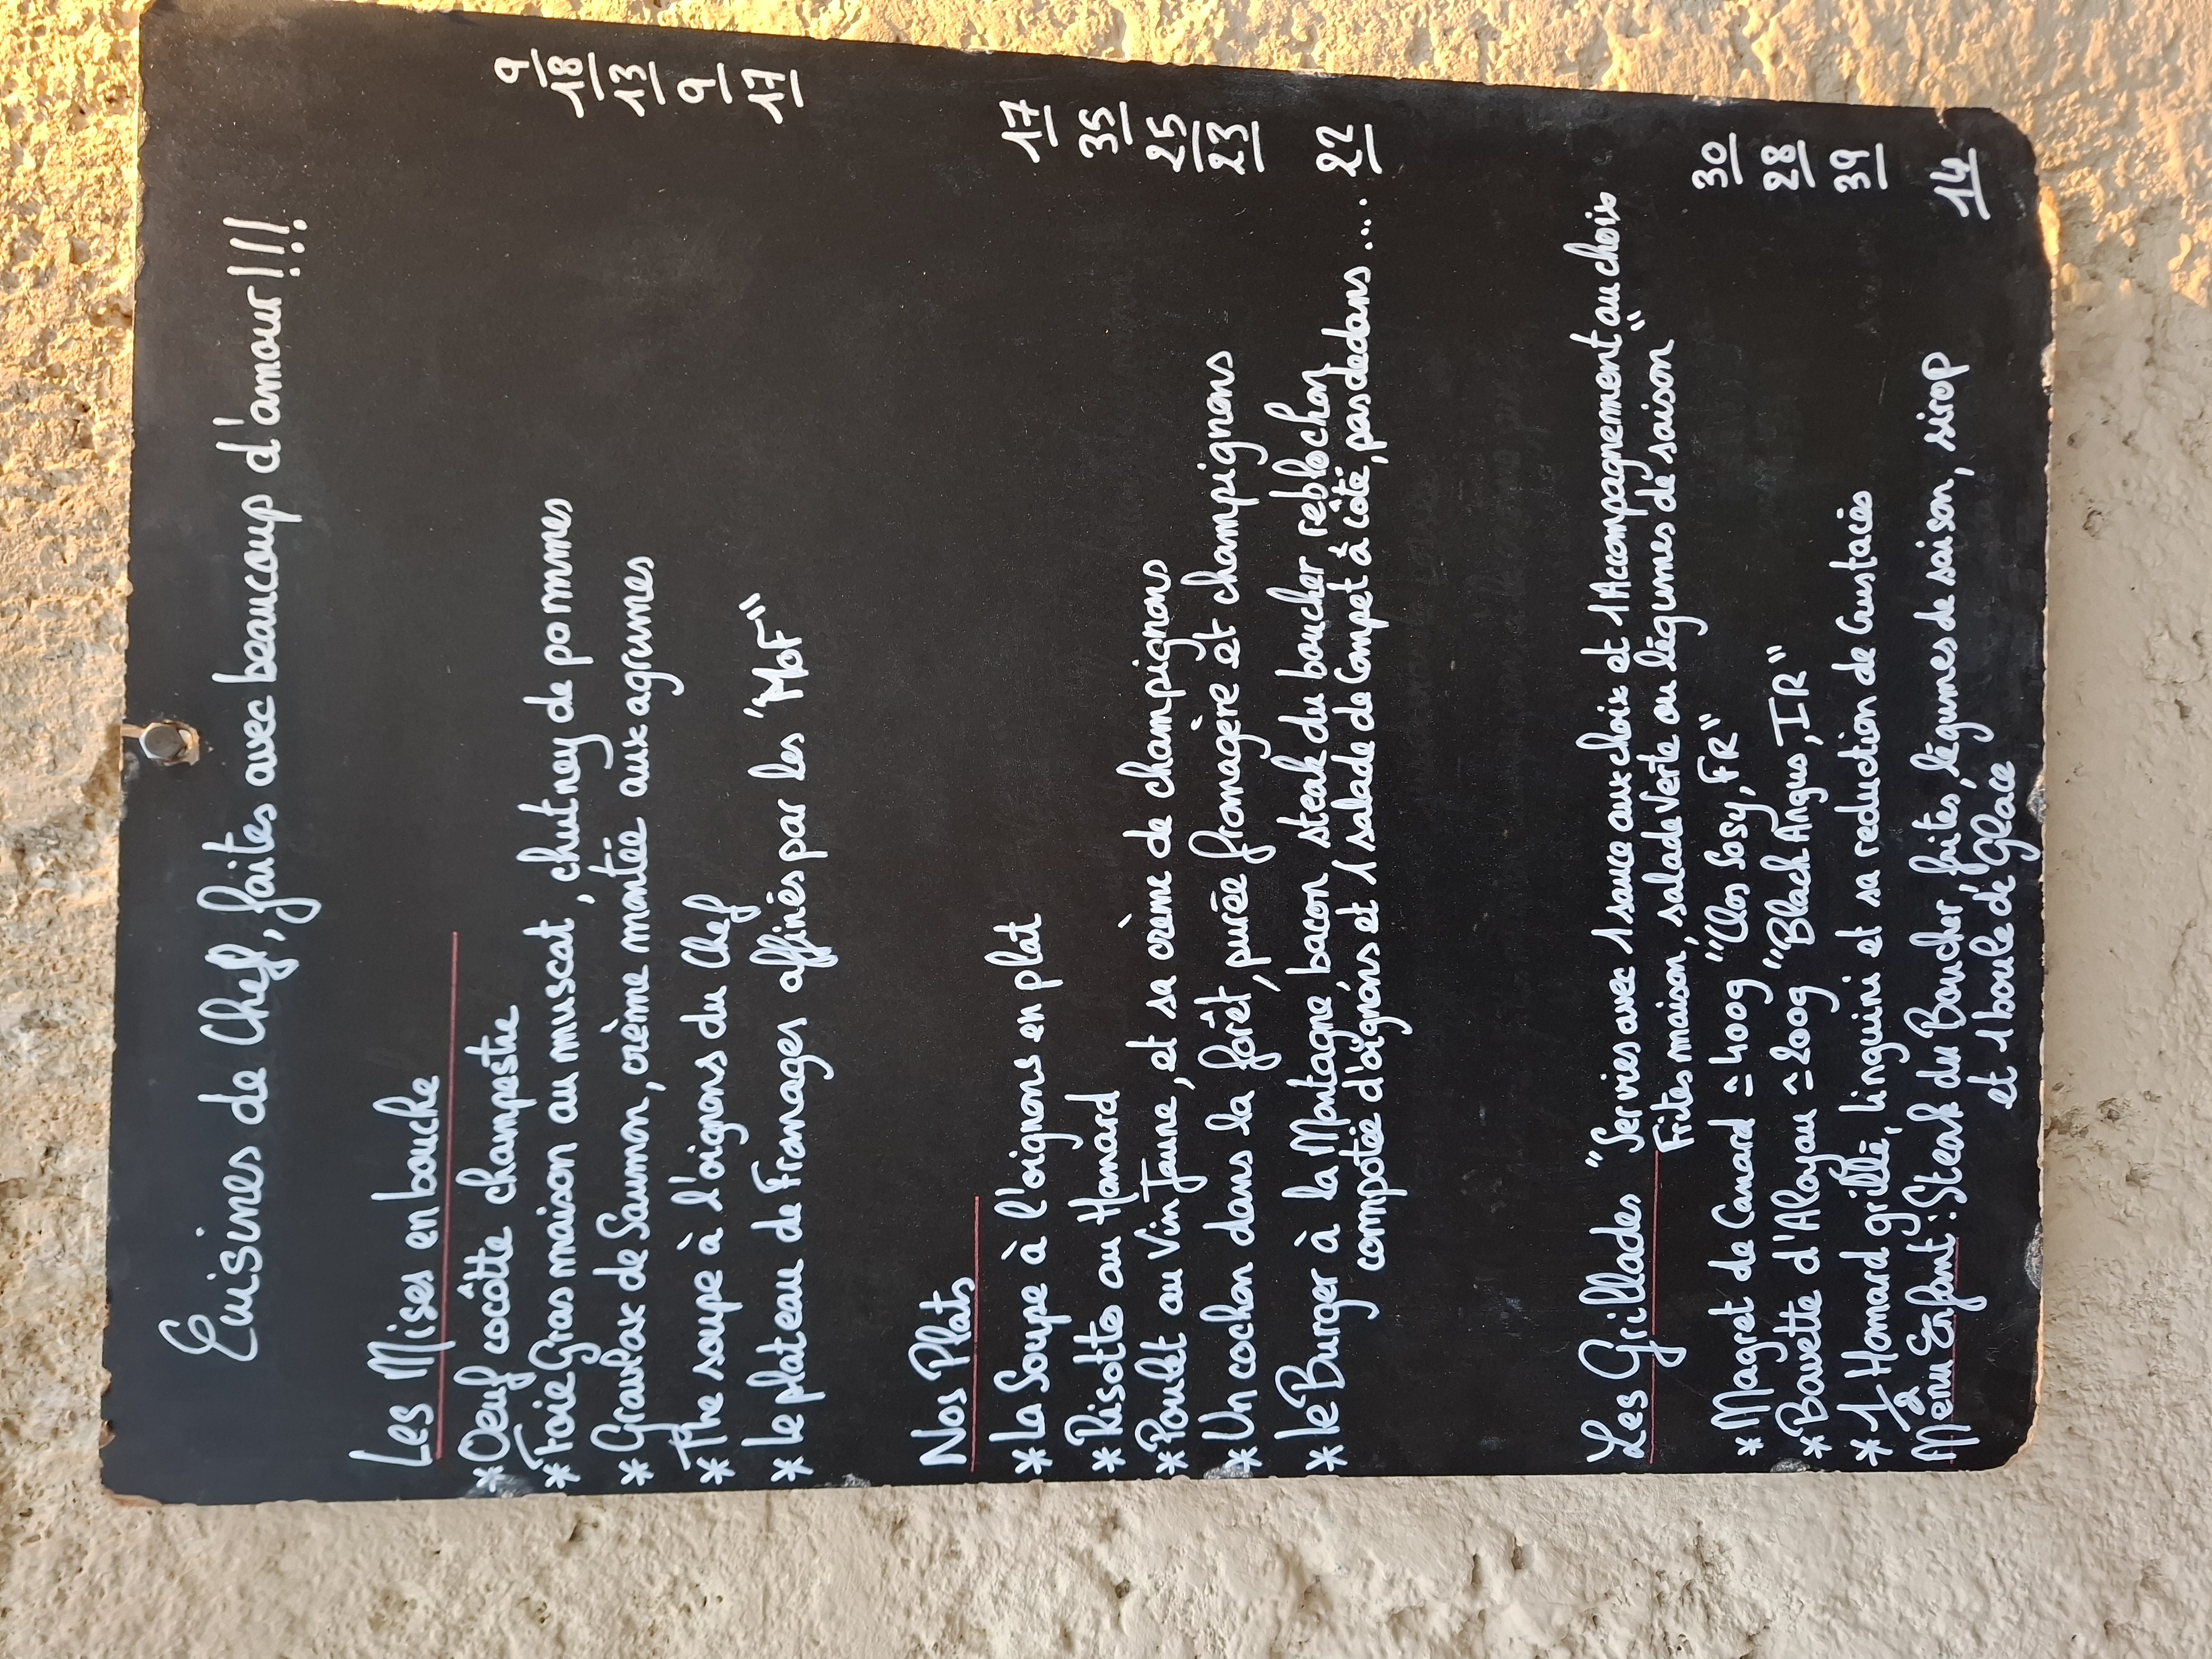 Cuisines de Chef, faites avec beaucoup d'amour!!!
Les Mises en bouche
*Oeuf cocôtte champestre 9
*Foie Gras maison au muscat, chutney de pommes 18
*Gravlax de Saumon, crème montée aux agrumes 13
*The soupe à l'oignons du Chef 9
*le plateau de Fromages affinés par les "MOF" 17
Nos Plats
*La Soupe à l'oignons en plat 17
*Risotto au Homard 35
*Poulet au Vin Jaune, et sa crème de champignons 25
*Un cochon dans la forêt, purée fromagère et champignons 23
*le Burger à la Montagne, bacon, steak du boucher reblochon,
compotée d'oignons et 1 salade de Compet à côté, pas dedans... 22
Les Grillades "Servies avec 1 sauce aux choix et 1 Accompagnement au choix
Frites maison, salade Verte ou légumes de saison"
*Magret de Canard ≃ 400g "Clos Sosy, FR" 30
*Bavette d'Aloyau ≃ 200g "Black Angus, IR" 28
*1/2 Homard grillé, linguini et sa reduction de Crustacés 39
Menu Enfant: Steak du Boucher, frites, légumes de saison, sirop
et 1 boule de Glace 14